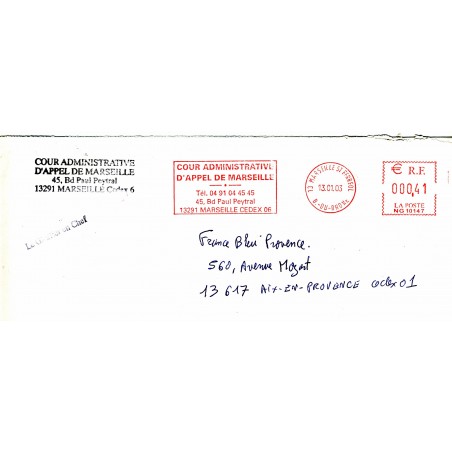 COUR ADMINISTRATIVE
D'APPEL DE MARSEILLE
45, Bd Paul Peytral
13291 MARSEILLE Cedex 6
Chef
COUR ADMINISTRATIVE
D'APPEL DE MARSEILLE
Tél. 04 91 04 45 45
45, Bd Paul Peytral
13291 MARSEILLE CEDEX 06
13 MARSEILLE
13.01.03
€ R.F.
000,41
LA POSTE
NG 10147
France Bleu Provence.
560, Avenue Mozart
13 617 AIX-EN-PROVENCE cedex 01